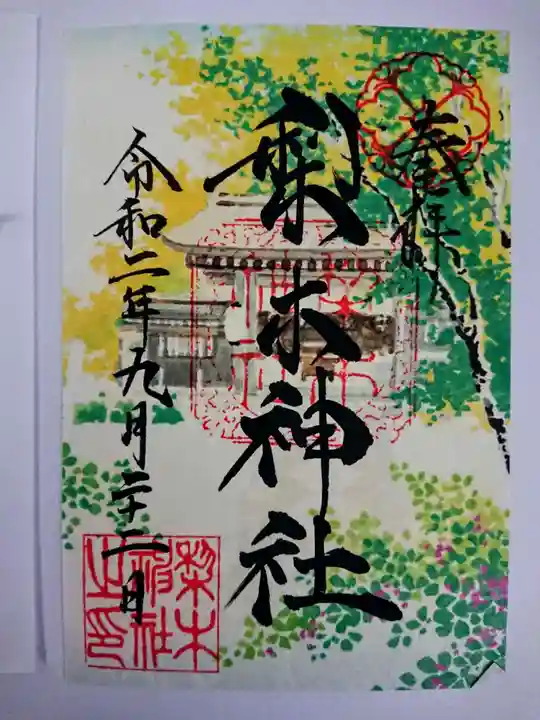 奉拝
梨木神社
令和二年九月二十二日
梨木
神社
之印